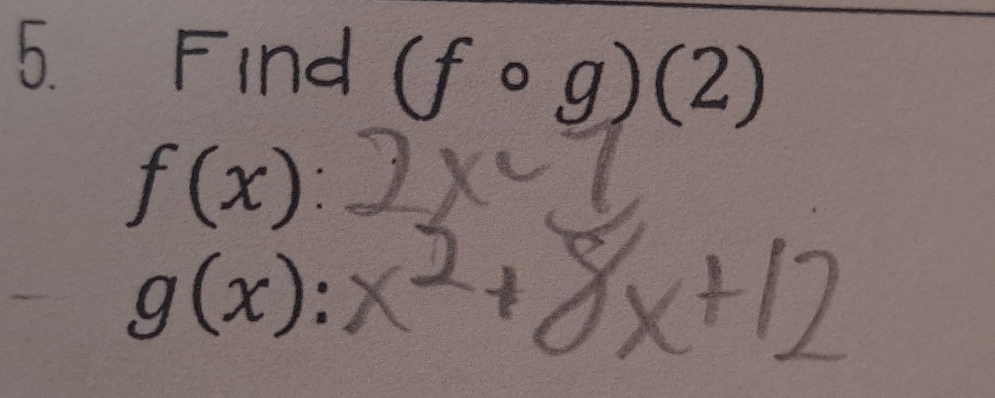 5. Find (f ∘ g)(2)
f(x): 2x - 7
g(x): x² + 8x + 12